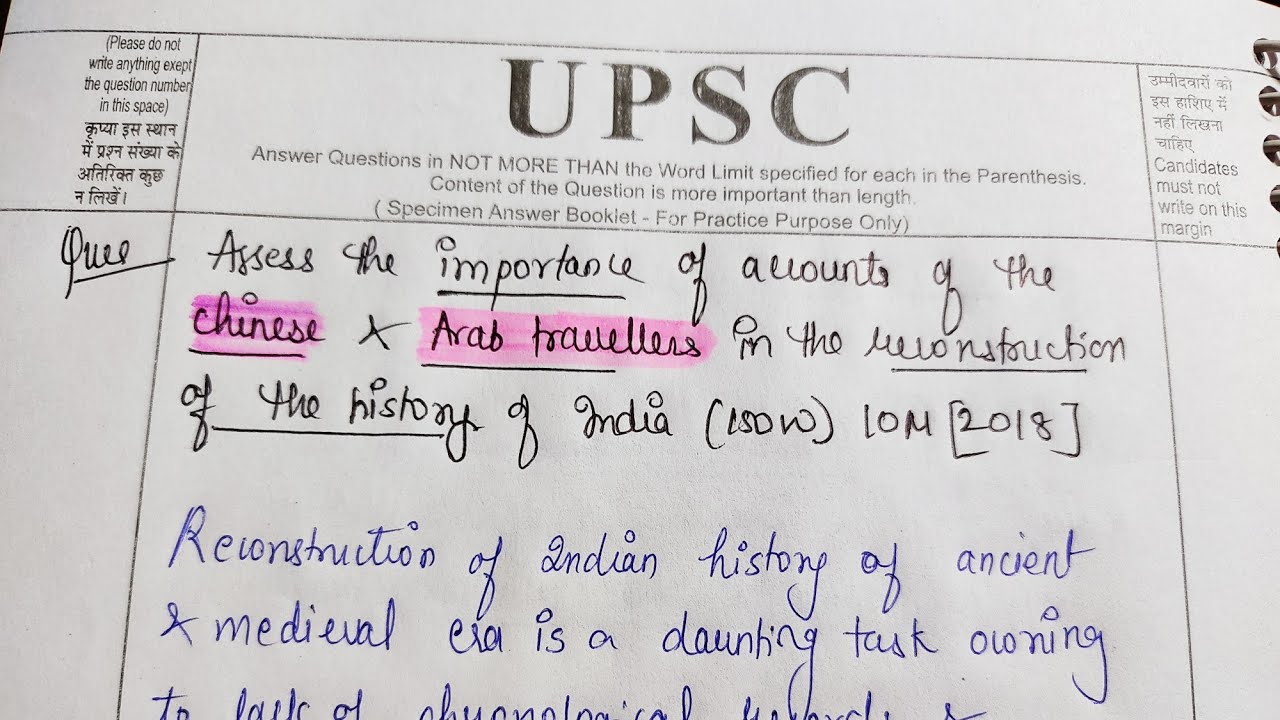 (Please do not
write anything exept
the question number
in this space)
कृप्या इस स्थान
में प्रश्न संख्या के
अतिरिक्त कुछ
न लिखें।
UPSC
Answer Questions in NOT MORE THAN the Word Limit specified for each in the Parenthesis.
Content of the Question is more important than length.
( Specimen Answer Booklet - For Practice Purpose Only)
उम्मीदवारों को
इस हाशिए में
नहीं लिखना
चाहिए
Candidates
must not
write on this
margin
Ques Assess the importance of accounts of the
chinese & Arab travellers in the reconstruction
of the history of India (150W) 10M [2018]
Reconstruction of Indian history of ancient
& medieval era is a daunting task owning
to lack of chronological records &